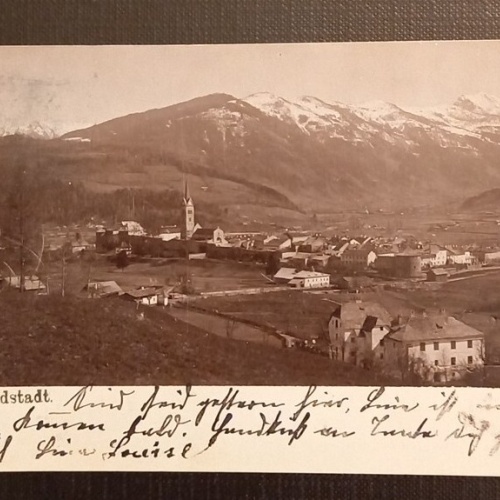 dstadt. Sind seid gestern hier, Line ist
Kommen bald. Handkuß an Tante
Line Louise